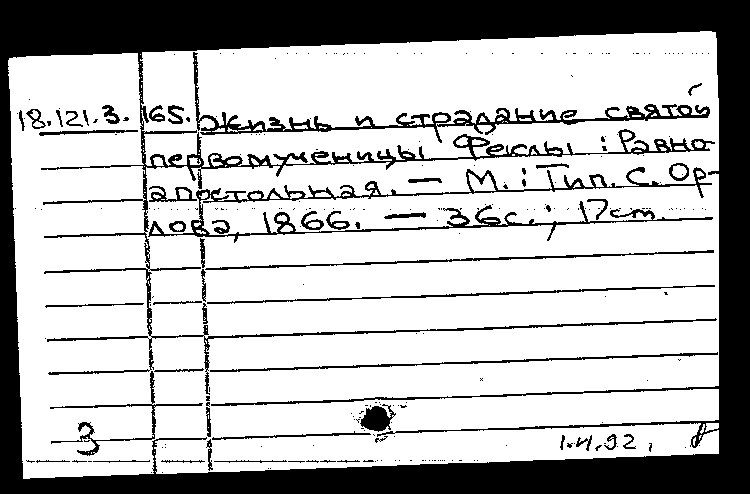 18.121.3. 165. Жизнь и страдание святой
первомученицы Феклы : Равно-
апостольная. — М. : Тип. С. Ор-
лова, 1866. — 36с. ; 17см.
3